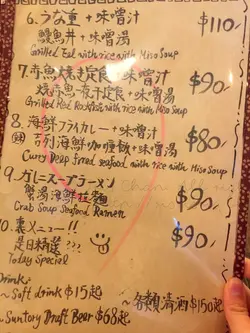 6. うな重 + 味噌汁 $110-
鰻魚丼 + 味噌湯
Grilled Eel with rice with Miso Soup
7. 赤魚焼き定食 + 味噌汁 $90-
燒赤魚定食 + 味噌湯
Grilled Red Rockfish with rice with Miso Soup
8. 海鮮フライカレー + 味噌汁 $80-
吉列海鮮咖喱飯 + 味噌湯
Curry Deep fried seafood with rice with Miso Soup
9. ガレースープラーメン $90-
蟹湯海鮮拉麵
Crab Soup Seafood Ramen
10. 裏メニュー!! $90-
是日精選???
Today Special
Drink
~ Soft drink $15起
~ 各類清酒 $150起
~ Suntory Draft Beer $68起